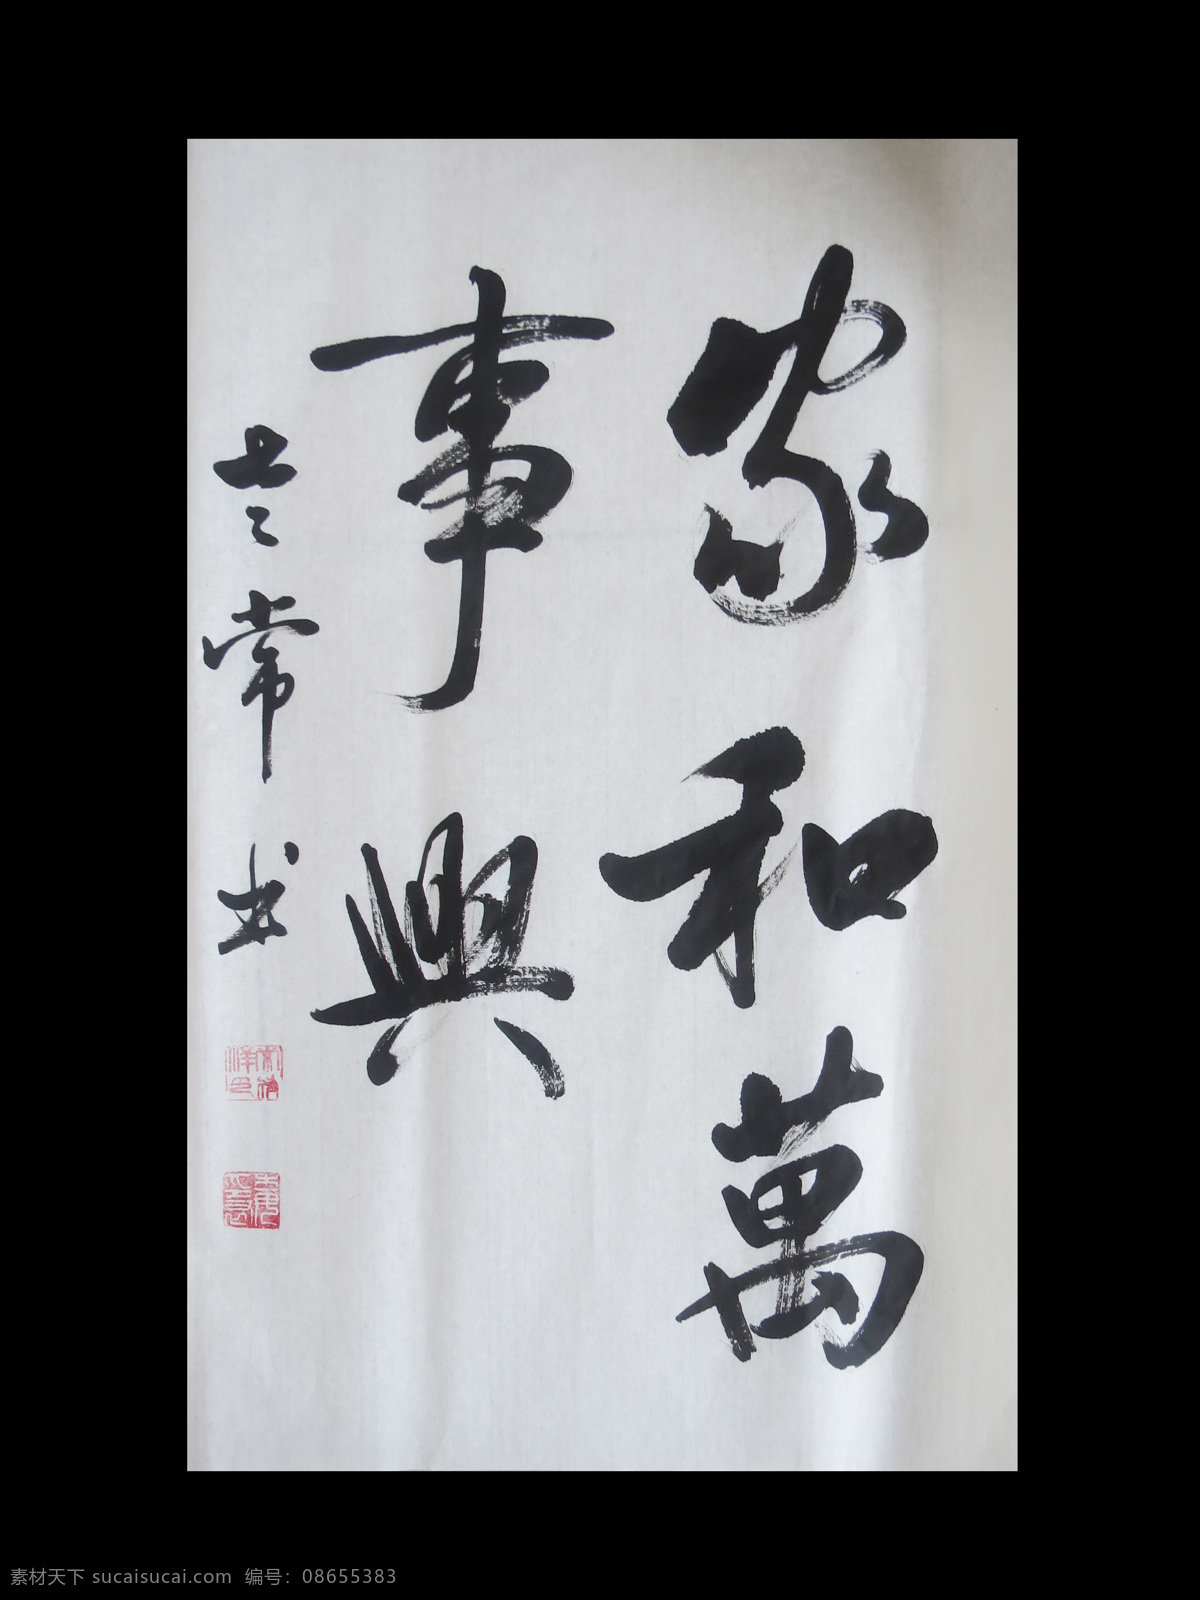 家和萬
事興
常书
素材天下 sucaisucai.com 编号：08655383